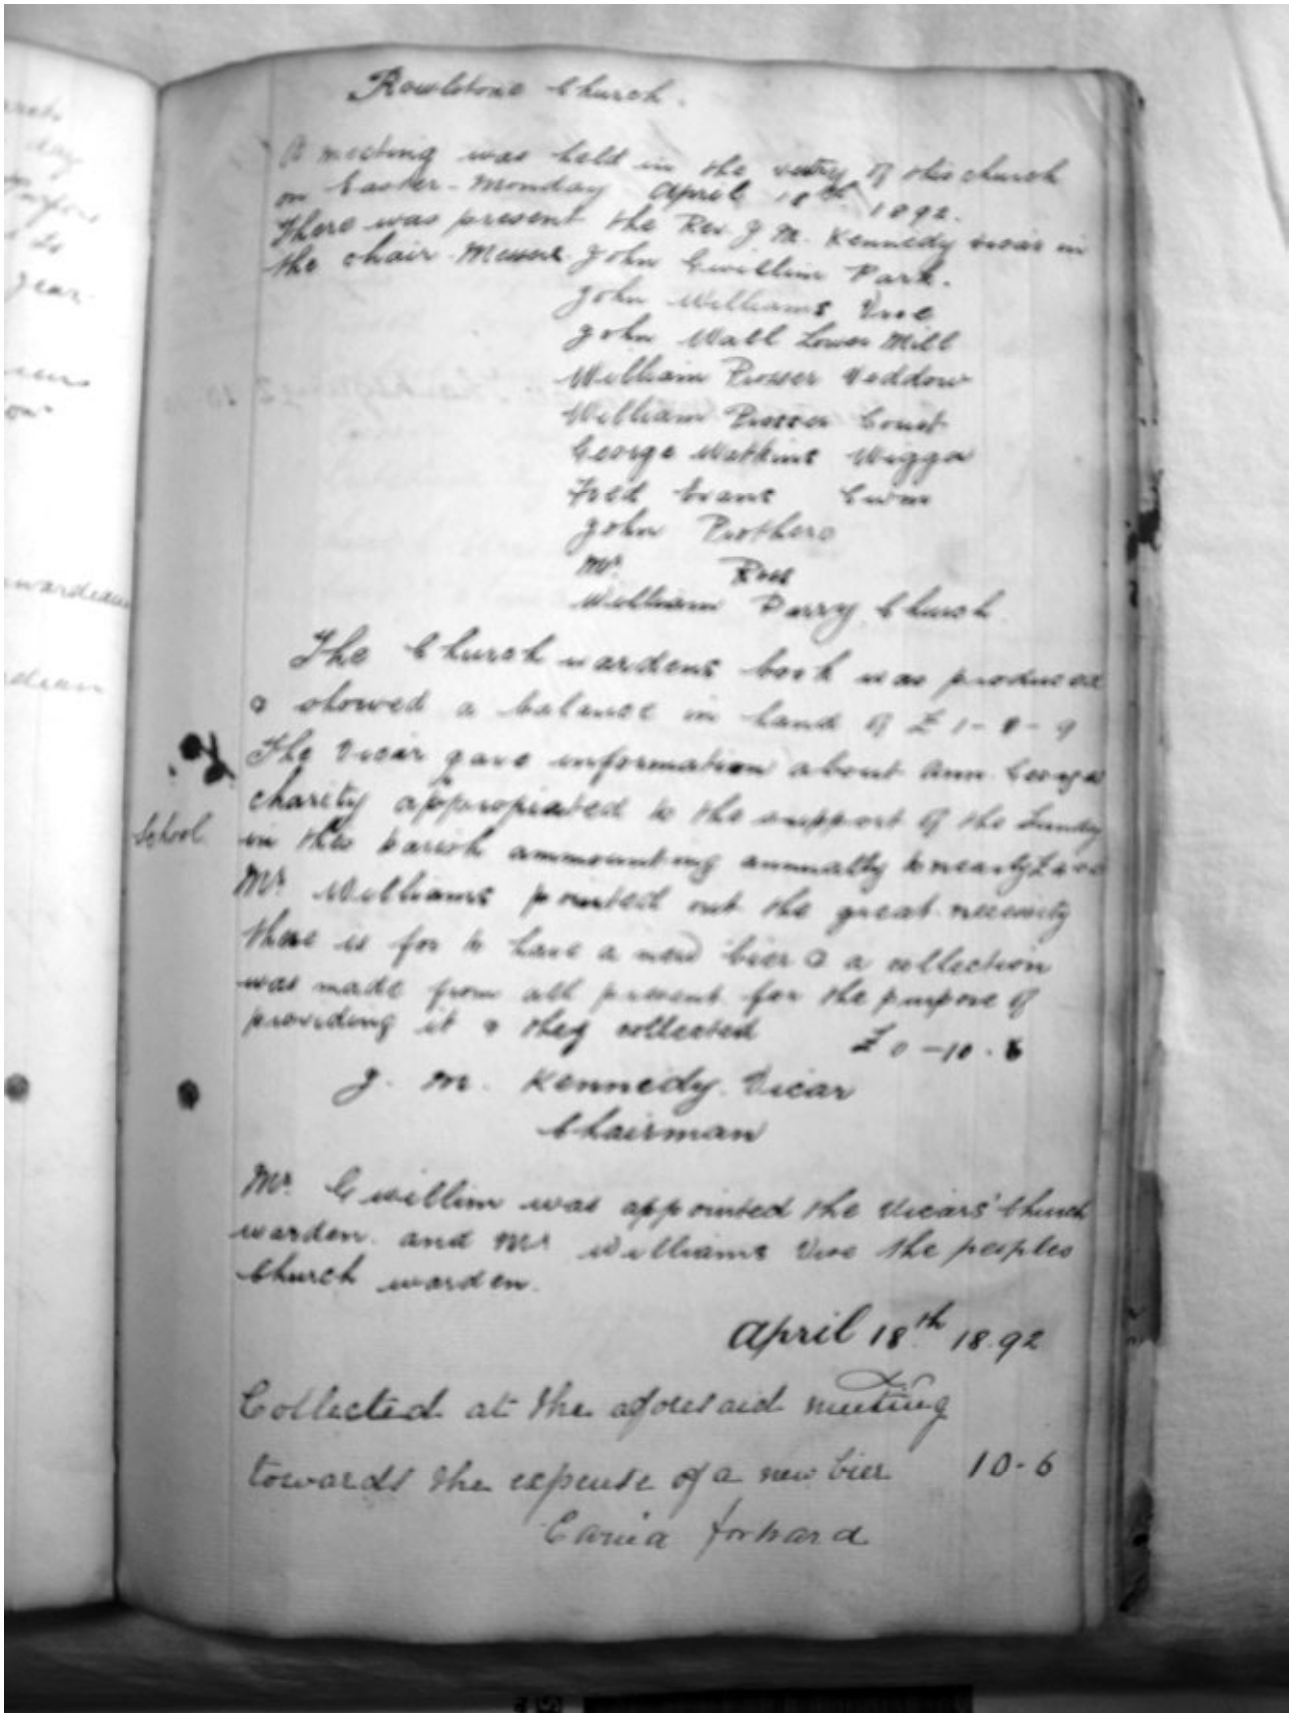 Rowlstone Church.
A meeting was held in the vestry of this church
on Easter-Monday April 18th 1892.
There was present the Rev. J. M. Kennedy vicar in
the chair. Messrs. John Gwillim Park.
John Williams Vroe
John Wall Lower Mill
William Prosser Weddow
William Prosser Court
George Watkins Wigga
Fred Evans Cwm
John Prothero
Mr. Rees
William Parry Church
The Church wardens book was produced
& showed a balance in hand of £ 1-
The Vicar gave information about Ann George
charity appropriated to the support of the Sunday
School in this parish ammounting annually to nearly
Mr. Williams pointed out the great necessity
there is for to have a new bier & a collection
was made from all present for the purpose of
providing it & they collected £0-10-6
J. M. Kennedy. Vicar
Chairman
Mr. Gwillim was appointed the Vicars' Church
warden. and Mr. Williams Vroe the peoples
Church warden.
April 18th 18.92
Collected at the aforesaid meeting
towards the expense of a new bier 10-6
Carried forward